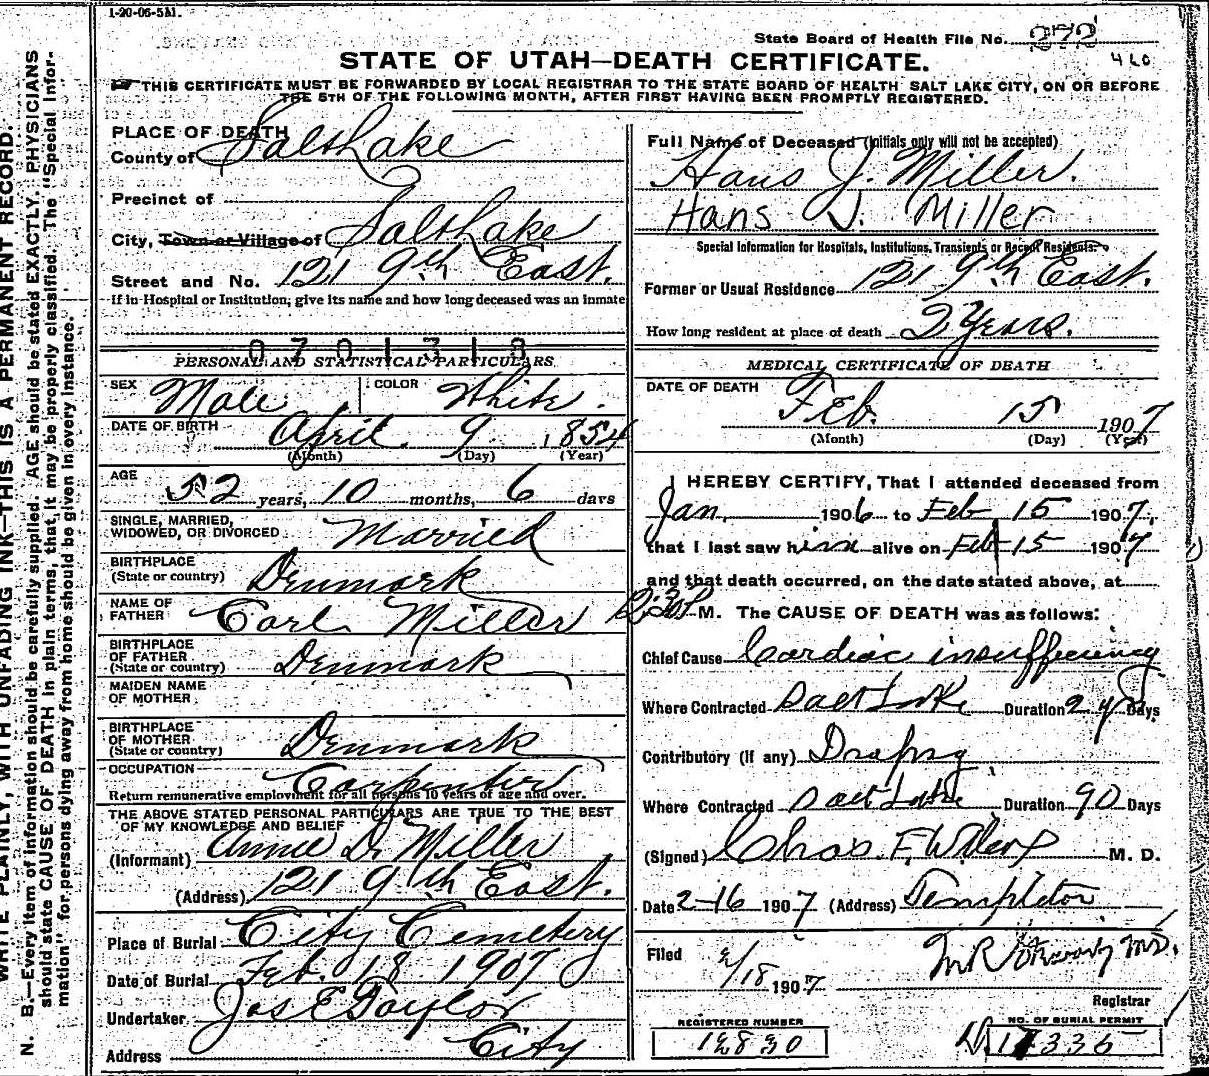 1-20-06-5M.
State Board of Health File No. 272
460
STATE OF UTAH—DEATH CERTIFICATE.
THIS CERTIFICATE MUST BE FORWARDED BY LOCAL REGISTRAR TO THE STATE BOARD OF HEALTH SALT LAKE CITY, ON OR BEFORE
THE 5TH OF THE FOLLOWING MONTH, AFTER FIRST HAVING BEEN PROMPTLY REGISTERED.
PLACE OF DEATH
County of Salt Lake
Precinct of
City, Town or Village of Salt Lake
Street and No. 121 9th East.
If in Hospital or Institution; give its name and how long deceased was an inmate
0701313
PERSONAL AND STATISTICAL PARTICULARS
SEX Male COLOR White.
DATE OF BIRTH April 9 1854
(Month) (Day) (Year)
AGE 52 years, 10 months, 6 days
SINGLE, MARRIED,
WIDOWED, OR DIVORCED Married
BIRTHPLACE
(State or country) Denmark
NAME OF
FATHER Carl Miller
BIRTHPLACE
OF FATHER
(State or country) Denmark
MAIDEN NAME
OF MOTHER
BIRTHPLACE
OF MOTHER
(State or country) Denmark
OCCUPATION Carpenter
Return remunerative employment for all persons 10 years of age and over.
THE ABOVE STATED PERSONAL PARTICULARS ARE TRUE TO THE BEST
OF MY KNOWLEDGE AND BELIEF
(Informant) Annie D. Miller
(Address) 121 9th East.
Place of Burial City Cemetery
Date of Burial Feb. 18 1907
Undertaker Jos E Taylor
Address City
Full Name of Deceased (Initials only will not be accepted)
Hans J. Miller.
Hans J. Miller
Special Information for Hospitals, Institutions, Transients or Recent Residents.
Former or Usual Residence 121 9th East.
How long resident at place of death 2 Years.
MEDICAL CERTIFICATE OF DEATH
DATE OF DEATH
Feb. 15 1907
(Month) (Day) (Year)
I HEREBY CERTIFY, That I attended deceased from
Jan. 1906 to Feb 15 1907,
that I last saw him alive on Feb 15 1907
and that death occurred, on the date stated above, at
M. The CAUSE OF DEATH was as follows:
Chief Cause Cardiac insufficiency
Where Contracted Salt Lake Duration 2 yrs Days
Contributory (if any) Dropsy
Where Contracted Salt Lake Duration 90 Days
(Signed) Chas. F. Wilcox M. D.
Date 2-16 1907 (Address) Templeton
Filed 2/18 1907
Registrar
REGISTERED NUMBER
12830
NO. OF BURIAL PERMIT
D.17336
WRITE PLAINLY, WITH UNFADING INK—THIS IS A PERMANENT RECORD.
N. B.—Every item of information should be carefully supplied. AGE should be stated EXACTLY. PHYSICIANS
should state CAUSE OF DEATH in plain terms, that it may be properly classified. The "Special Infor-
mation" for persons dying away from home should be given in every instance.